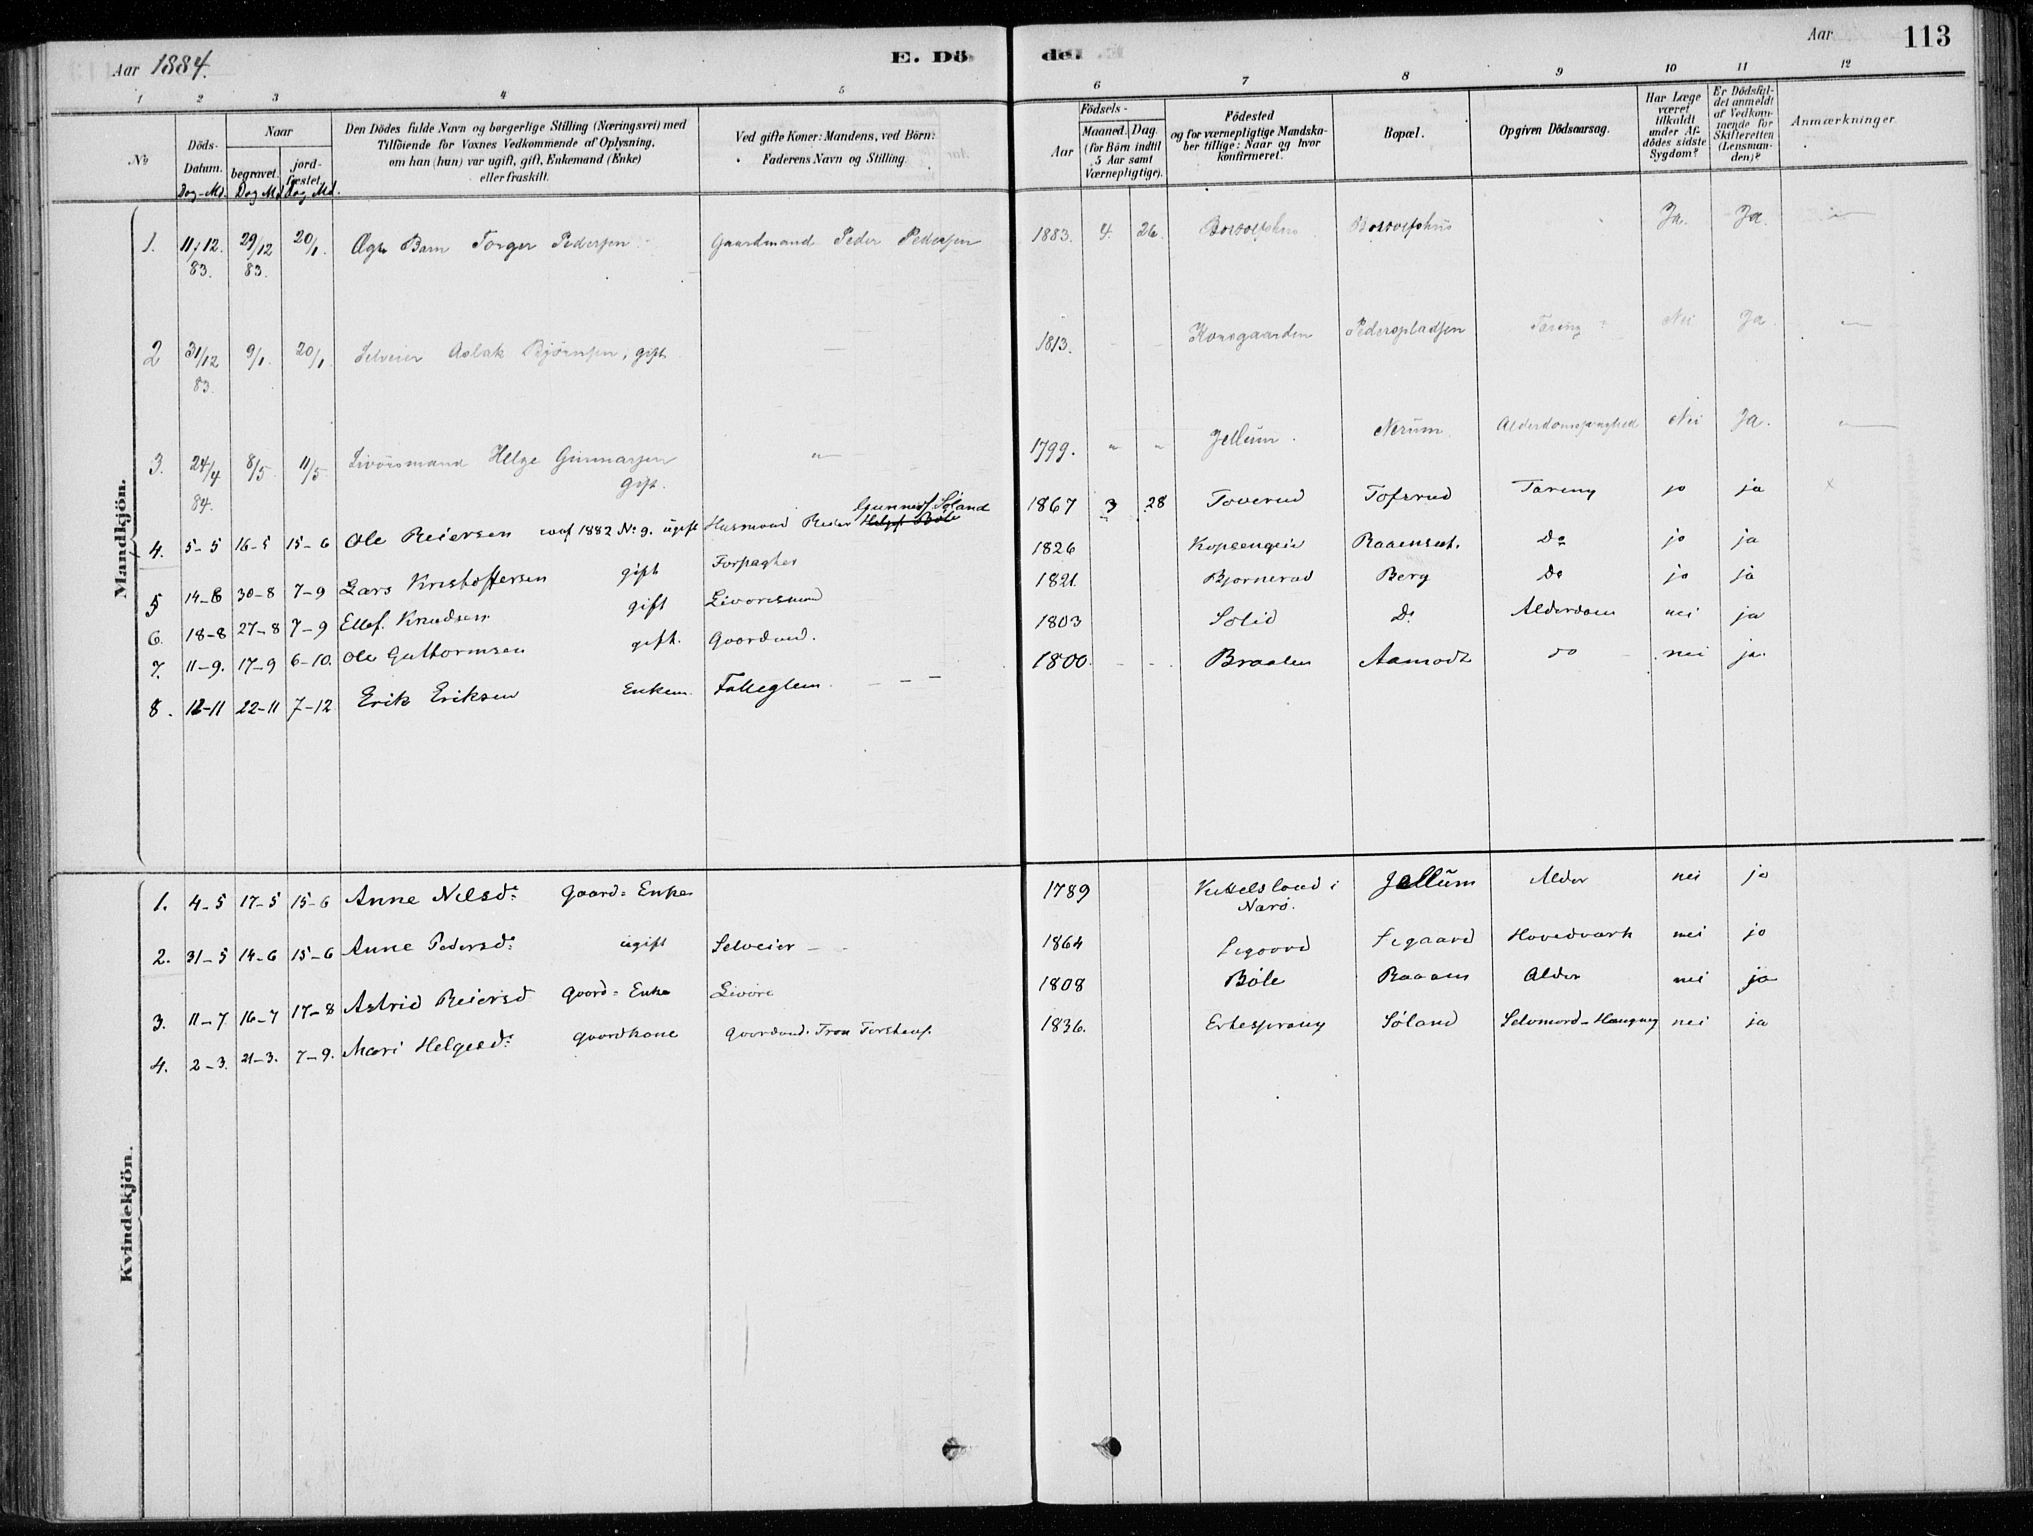 Aar 1884.
E. Dö
de.
Aar
113
1 2 3 4 5 6 7 8 9 10 11 12
No
Döds-
Datum.
Dag-Md.
Naar
begravet.
Dag Md
jord-
fæstet.
Dag Md.
Den Dödes fulde Navn og borgerlige Stilling (Næringsvei) med
Tilföiende for Voxnes Vedkommende af Oplysning,
om han (hun) var ugift, gift, Enkemand (Enke)
eller fraskilt.
Ved gifte Koner: Mandens, ved Börn:
Faderens Navn og Stilling.
Födsels-
Aar
Maaned. Dag.
(for Börn indtil
5 Aar samt
Værnepligtige).
Födested
og for værnepligtige Mandska-
ber tillige: Naar og hvor
konfirmeret.
Bopæl.
Opgiven Dödsaarsag.
Har Læge
været
tilkaldt
under Af-
dödes sidste
Sygdom?
Er Dödsfal-
det anmeldt
af Vedkom-
mende for
Skifteretten
(Lensman-
den)?
Anmærkninger
Mandkjön.
1. 11/12. 83. 29/12 83. 20/1. Ægte Barn Torger Pedersen Gaardmand Peder Pedersen 1883. 4 26. Borrolfshus Borrolfshus Ja. Ja. "
2 31/12 83. 9/1. 20/1 Selveier Aslak Bjørnsen, gift — 1813. - - Konsgaarden Pederspladsen Tæring? Nei Ja. "
3. 24/4 84. 8/5. 11/5. Livöresmand Helge Gunnarsen gift. " 1799. " " Jellum. Nerum. Alderdomssvaghed Nei Ja. "
4. 5-5 16-5 15-6 Ole Reiersen conf 1882 No 9. ugift Husmand Reier Helgs. Böle Gunnersf. Søland 1867 3 28 Toverud Tofsrud Tæring ja ja x
5 14-8 30-8 7-9 Lars Kristoffersen gift Forpagter 1826 Kopsengeie Raaenseet. Do ja ja
6. 18-8 27-8 7-9 Ellef. Knudsen gift Livöresmand 1821. Bjørnerud Berg Do ja ja
7. 11-9. 17-9 6-10. Ole Guttormsen gift. Gaardmd. 1803 Solid Do Alderdom nei ja
8. 12-11 22-11 7-12 Erik Eriksen Enkem. Fatteglem. - - - 1800. - - Braaten Aamodt do nei ja.
Kvindekjön.
1. 4-5 17-5 15-6 Anne Nilsdr. Gaard=Enke 1789 Kittelsland i Narö. Jellum Alder nei ja
2. 31-5 14-6 15-6 Anne Pedersdr. ugift Selveier - - 1864 Segaard Segaard Hovedværk nei ja
3. 11-7 16-7 17-8 Astrid Reiersd Gaard=Enke Livöre 1808 Böle Raaen Alder nei ja
4. 2-3. 21-3. 7-9. Mari Helgesdr. Gaardkone Gaardmd. Tron Torstens. 1836. Ertesprang Søland Selvmord-Hængning nei ja